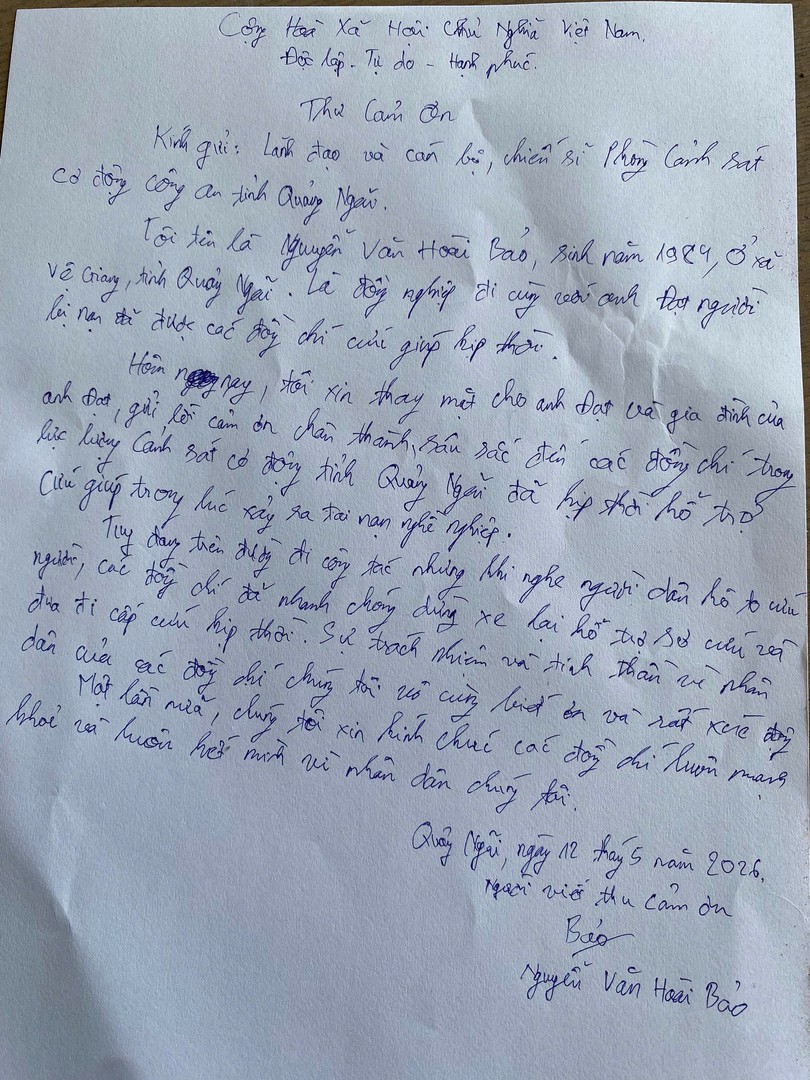 Cộng Hoà Xã Hội Chủ Nghĩa Việt Nam.
Độc lập - Tự do - Hạnh phúc.
Thư Cảm Ơn
Kính gửi: Lãnh đạo và cán bộ, chiến sĩ Phòng Cảnh sát
cơ động công an tỉnh Quảng Ngãi.
Tôi tên là Nguyễn Văn Hoài Bảo, sinh năm 1984, ở xã
Vệ Giang, tỉnh Quảng Ngãi. Là đồng nghiệp đi cùng với anh Đạt người
bị nạn đã được các đồng chí cứu giúp kịp thời.
Hôm nay, tôi xin thay mặt cho anh Đạt và gia đình của
anh Đạt, gửi lời cảm ơn chân thành, sâu sắc đến các đồng chí trong
lực lượng Cảnh sát cơ động tỉnh Quảng Ngãi đã kịp thời hỗ trợ
Cứu giúp trong lúc xảy ra tai nạn nghề nghiệp.
Tuy đang trên đường đi công tác nhưng khi nghe người dân hô to cứu
người, các đồng chí đã nhanh chóng dừng xe lại hỗ trợ sơ cứu và
đưa đi cấp cứu kịp thời. Sự trách nhiệm và tinh thần vì nhân
dân của các đồng chí chúng tôi vô cùng biết ơn và rất xúc động
Một lần nữa, chúng tôi xin kính chúc các đồng chí luôn mạnh
khoẻ và luôn hết mình vì nhân dân chúng tôi.
Quảng Ngãi, ngày 12 tháng 5 năm 2026.
Người viết thư cảm ơn
Bảo
Nguyễn Văn Hoài Bảo